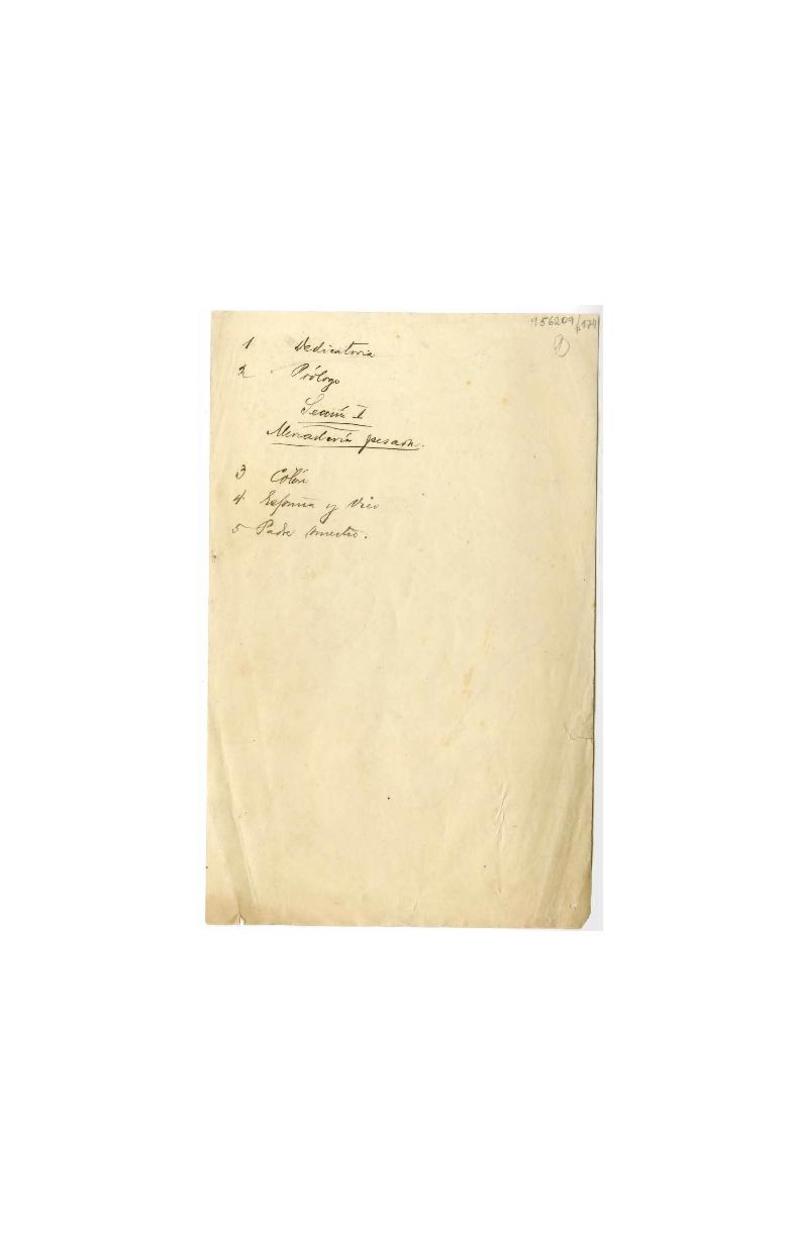 956209/174
1 Dedicatoria
2 Prólogo
Sección I
Mercadería pesada.
3 Colón
4 España y
5 Padre nuestro.